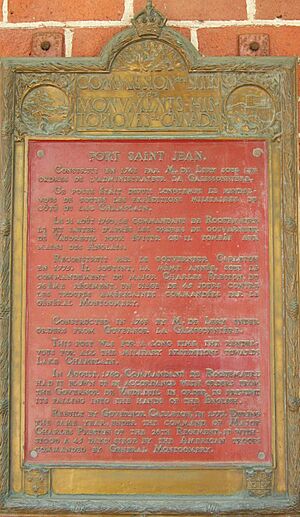 COMMISSION DES SITES
ET
MONUMENTS HIS-
TORIQUES DU CANADA
FORT SAINT JEAN.
CONSTRUIT EN 1748 PAR M. DE LERY SOUS LES
ORDRES DE L'ADMINISTRATEUR LA GALISSONNIÈRE.
CE POSTE ÉTAIT DEPUIS LONGTEMPS LE RENDEZ-
VOUS DE TOUTES LES EXPÉDITIONS MILITAIRES DU
CÔTÉ DU LAC CHAMPLAIN.
LE 31 AOÛT 1760, LE COMMANDANT DE ROQUEMAURE
LE FIT SAUTER D'APRÈS LES ORDRES DU GOUVERNEUR
DE VAUDREUIL POUR ÉVITER QU'IL TOMBÂT AUX
MAINS DES ANGLAIS.
RECONSTRUIT PAR LE GOUVERNEUR CARLETON
EN 1775. IL SOUTINT, LA MÊME ANNÉE, SOUS LE
COMMANDEMENT DU MAJOR CHARLES PRESTON DU
26ÈME RÉGIMENT, UN SIÈGE DE 45 JOURS CONTRE
LES TROUPES AMÉRICAINES COMMANDÉES PAR LE
GÉNÉRAL MONTGOMERY.
CONSTRUCTED IN 1748 BY M. DE LERY UNDER
ORDERS FROM GOVERNOR LA GALISSONNIÈRE.
THIS POST WAS FOR A LONG TIME THE RENDEZ-
VOUS FOR ALL THE MILITARY EXPEDITIONS TOWARDS
LAKE CHAMPLAIN.
IN AUGUST, 1760, COMMANDANT DE ROQUEMAURE
HAD IT BLOWN UP IN ACCORDANCE WITH ORDERS FROM
THE GOVERNOR DE VAUDREUIL IN ORDER TO PREVENT
ITS FALLING INTO THE HANDS OF THE ENGLISH.
REBUILT BY GOVERNOR CARLETON, IN 1775. DURING
THE SAME YEAR, UNDER THE COMMAND OF MAJOR
CHARLES PRESTON OF THE 26TH REGIMENT, IT WITH-
STOOD A 45 DAYS' SIEGE BY THE AMERICAN TROOPS
COMMANDED BY GENERAL MONTGOMERY.